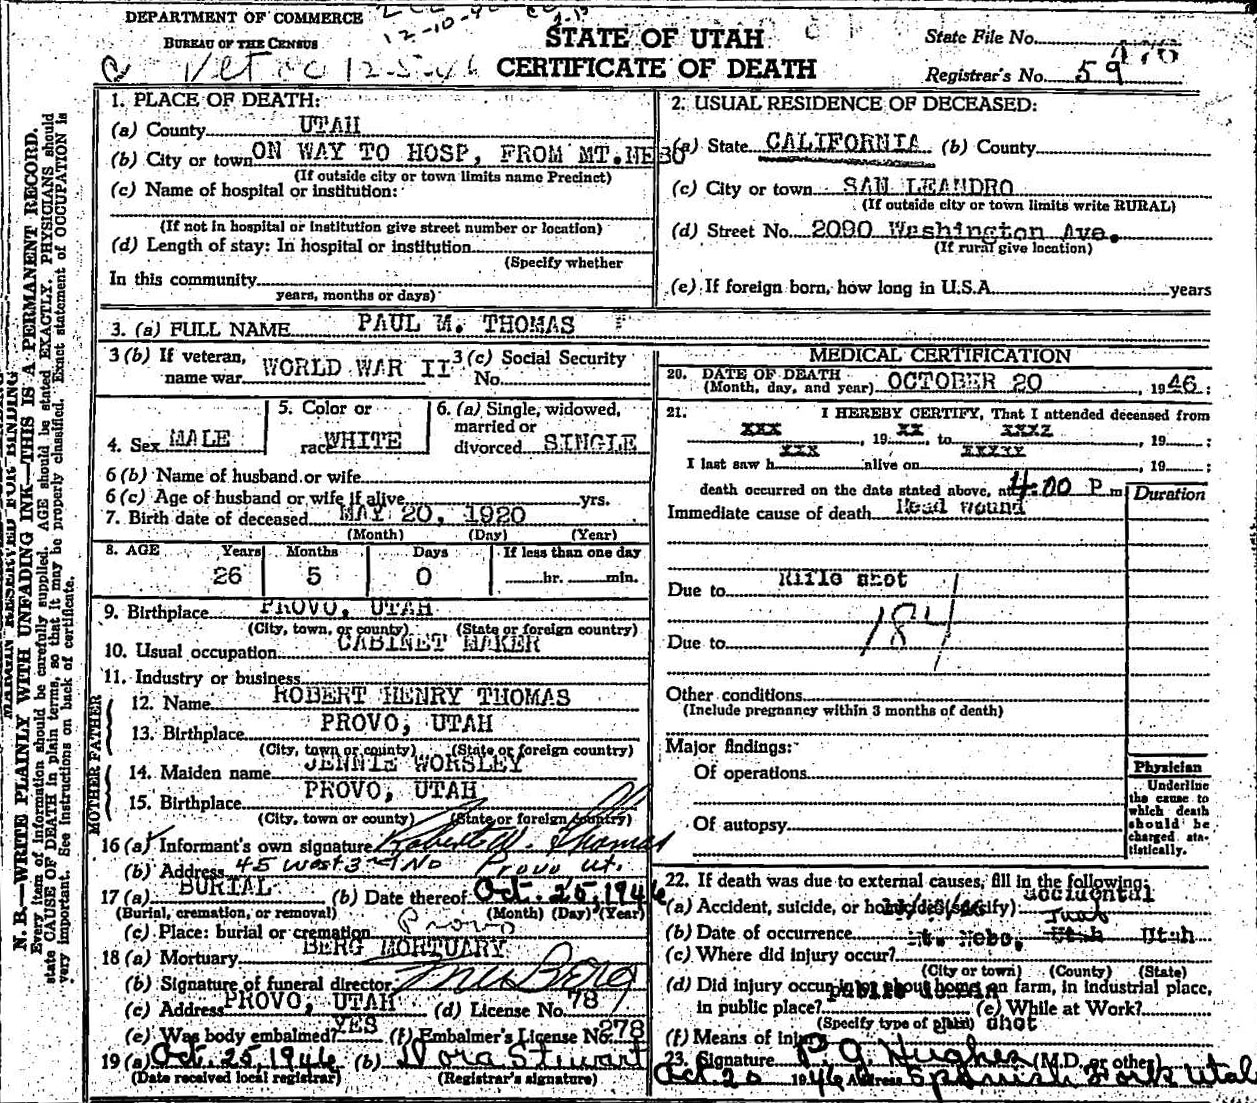 DEPARTMENT OF COMMERCE
BUREAU OF THE CENSUS
12-5-46
STATE OF UTAH
CERTIFICATE OF DEATH
State File No.
Registrar's No. 59
N. B.—WRITE PLAINLY WITH UNFADING INK—THIS IS A PERMANENT RECORD.
Every item of information should be carefully supplied. AGE should be stated EXACTLY. PHYSICIANS should
state CAUSE OF DEATH in plain terms, so that it may be properly classified. Exact statement of OCCUPATION is
very important. See instructions on back of certificate.
1. PLACE OF DEATH:
(a) County UTAH
(b) City or town ON WAY TO HOSP, FROM MT.NEBO
(If outside city or town limits name Precinct)
(c) Name of hospital or institution:
(If not in hospital or institution give street number or location)
(d) Length of stay: In hospital or institution
(Specify whether
In this community
years, months or days)
2. USUAL RESIDENCE OF DECEASED:
(a) State CALIFORNIA (b) County
(c) City or town SAN LEANDRO
(If outside city or town limits write RURAL)
(d) Street No. 2090 Washington Ave.
(If rural give location)
(e) If foreign born, how long in U.S.A. years
3. (a) FULL NAME PAUL M. THOMAS
3 (b) If veteran, name war WORLD WAR II 3 (c) Social Security No.
4. Sex MALE
5. Color or race WHITE
6. (a) Single, widowed, married or divorced SINGLE
6 (b) Name of husband or wife
6 (c) Age of husband or wife if alive yrs.
7. Birth date of deceased MAY 20, 1920
(Month) (Day) (Year)
8. AGE Years Months Days If less than one day
26 5 0 hr. min.
9. Birthplace PROVO, UTAH
(City, town, or county) (State or foreign country)
10. Usual occupation CABINET MAKER
11. Industry or business
FATHER
12. Name ROBERT HENRY THOMAS
13. Birthplace PROVO, UTAH
(City, town or county) (State or foreign country)
MOTHER
14. Maiden name JENNIE WORSLEY
15. Birthplace PROVO, UTAH
(City, town or county) (State or foreign country)
16 (a) Informant's own signature Robert W. Thomas
(b) Address 45 West 3rd No Provo Ut.
17 (a) BURIAL (b) Date thereof Oct. 25, 1946
(Burial, cremation, or removal) (Month) (Day) (Year)
(c) Place: burial or cremation Provo
18 (a) Mortuary BERG MORTUARY
(b) Signature of funeral director Berg
(c) Address PROVO, UTAH (d) License No. 78
(e) Was body embalmed? YES (f) Embalmer's License No. 278
19 (a) Oct. 25, 1946 (b) Dora Stewart
(Date received local registrar) (Registrar's signature)
MEDICAL CERTIFICATION
20. DATE OF DEATH
(Month, day, and year) OCTOBER 20 1946;
21. I HEREBY CERTIFY, That I attended deceased from
XXX , 19 XX , to XXXZ , 19 ;
I last saw h XXX alive on XXXXX , 19 ;
death occurred on the date stated above, at 4:00 P m
Duration
Immediate cause of death Head wound
Due to Rifle shot
184
Due to
Other conditions
(Include pregnancy within 3 months of death)
Major findings:
Of operations
Of autopsy
Physician
Underline
the cause to
which death
should be
charged sta-
tistically.
22. If death was due to external causes, fill in the following:
(a) Accident, suicide, or homicide (specify): accidental
(b) Date of occurrence
(c) Where did injury occur? Mt. Nebo, Juab Utah Utah
(City or town) (County) (State)
(d) Did injury occur in or about home, on farm, in industrial place,
in public place? public domain (e) While at Work?
(Specify type of place)
(f) Means of injury shot
23. Signature P. G. Hughes (M.D. or other)
Oct. 20 1946 Address Spanish Fork Utah